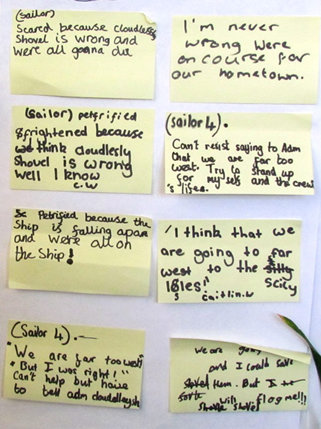 (sailor)
Scared because cloudlesly
Shovel is wrong and
were all gonna die
I'm never
wrong were
on course for
our hometown.
(sailor) petrified
frightened because
think cloudlesly
Shovel is wrong
well I know
c.w
(sailor 4).
Can't resist saying to Adm
that we are far too
west. Try to stand up
for my self and the crew
's lifes.
Petrified because the
Ship is falling apart
and were all on
the Ship!
"I think that we
are going to far
west to the
Scily
Isles"
caitlin.w
(Sailor 4).
"We are far too west"
"But I was right!"
Can't help but have
to tell adm
we are going
and I could save
them. But I
will flog me!!!
shovel